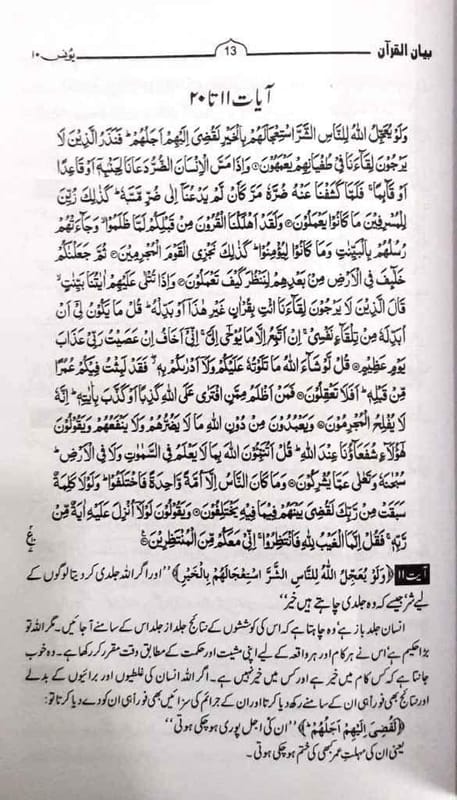 بیان القرآن 13 یونس ۱۰
آیات ۱۱ تا ۲۰
وَلَوْ يُعَجِّلُ اللّٰهُ لِلنَّاسِ الشَّرَّ اسْتِعْجَالَهُمْ بِالْخَيْرِ لَقُضِیَ اِلَيْهِمْ اَجَلُهُمْ ؕ فَنَذَرُ الَّذِيْنَ لَا
يَرْجُوْنَ لِقَآءَنَا فِيْ طُغْيَانِهِمْ يَعْمَهُوْنَ۝ وَاِذَا مَسَّ الْاِنْسَانَ الضُّرُّ دَعَانَا لِجَنْۢبِهٖٓ اَوْ قَاعِدًا
اَوْ قَآئِمًا ۚ فَلَمَّا كَشَفْنَا عَنْهُ ضُرَّهٗ مَرَّ كَاَنْ لَّمْ يَدْعُنَآ اِلٰى ضُرٍّ مَّسَّهٗ ؕ كَذٰلِكَ زُيِّنَ
لِلْمُسْرِفِيْنَ مَا كَانُوْا يَعْمَلُوْنَ۝ وَلَقَدْ اَهْلَكْنَا الْقُرُوْنَ مِنْ قَبْلِكُمْ لَمَّا ظَلَمُوْا ۙ وَجَآءَتْهُمْ
رُسُلُهُمْ بِالْبَيِّنٰتِ وَمَا كَانُوْا لِيُؤْمِنُوْا ؕ كَذٰلِكَ نَجْزِی الْقَوْمَ الْمُجْرِمِيْنَ۝ ثُمَّ جَعَلْنٰكُمْ
خَلٰٓئِفَ فِی الْاَرْضِ مِنْۢ بَعْدِهِمْ لِنَنْظُرَ كَيْفَ تَعْمَلُوْنَ۝ وَاِذَا تُتْلٰى عَلَيْهِمْ اٰيَاتُنَا بَيِّنٰتٍ ۙ
قَالَ الَّذِيْنَ لَا يَرْجُوْنَ لِقَآءَنَا ائْتِ بِقُرْاٰنٍ غَيْرِ هٰذَآ اَوْ بَدِّلْهُ ؕ قُلْ مَا يَكُوْنُ لِيْٓ اَنْ
اُبَدِّلَهٗ مِنْ تِلْقَآئِ نَفْسِيْ ۚ اِنْ اَتَّبِعُ اِلَّا مَا يُوْحٰٓى اِلَيَّ ۚ اِنِّيْٓ اَخَافُ اِنْ عَصَيْتُ رَبِّيْ عَذَابَ
يَوْمٍ عَظِيْمٍ۝ قُلْ لَّوْ شَآءَ اللّٰهُ مَا تَلَوْتُهٗ عَلَيْكُمْ وَلَآ اَدْرٰىكُمْ بِهٖ ۖ فَقَدْ لَبِثْتُ فِيْكُمْ عُمُرًا
مِّنْ قَبْلِهٖ ؕ اَفَلَا تَعْقِلُوْنَ۝ فَمَنْ اَظْلَمُ مِمَّنِ افْتَرٰى عَلَى اللّٰهِ كَذِبًا اَوْ كَذَّبَ بِاٰيٰتِهٖ ؕ اِنَّهٗ
لَا يُفْلِحُ الْمُجْرِمُوْنَ۝ وَيَعْبُدُوْنَ مِنْ دُوْنِ اللّٰهِ مَا لَا يَضُرُّهُمْ وَلَا يَنْفَعُهُمْ وَيَقُوْلُوْنَ
هٰٓؤُلَآءِ شُفَعَآؤُنَا عِنْدَ اللّٰهِ ؕ قُلْ اَتُنَبِّـُٔوْنَ اللّٰهَ بِمَا لَا يَعْلَمُ فِی السَّمٰوٰتِ وَلَا فِی الْاَرْضِ ؕ
سُبْحٰنَهٗ وَتَعٰلٰى عَمَّا يُشْرِكُوْنَ۝ وَمَا كَانَ النَّاسُ اِلَّآ اُمَّةً وَّاحِدَةً فَاخْتَلَفُوْا ؕ وَلَوْلَا كَلِمَةٌ
سَبَقَتْ مِنْ رَّبِّكَ لَقُضِیَ بَيْنَهُمْ فِيْمَا فِيْهِ يَخْتَلِفُوْنَ۝ وَيَقُوْلُوْنَ لَوْلَآ اُنْزِلَ عَلَيْهِ اٰيَةٌ مِّنْ
رَّبِّهٖ ۚ فَقُلْ اِنَّمَا الْغَيْبُ لِلّٰهِ فَانْتَظِرُوْا ۚ اِنِّيْ مَعَكُمْ مِّنَ الْمُنْتَظِرِيْنَ۝ ع
آیت ۱۱ ﴿وَلَوْ يُعَجِّلُ اللّٰهُ لِلنَّاسِ الشَّرَّ اسْتِعْجَالَهُمْ بِالْخَيْرِ﴾ ’’اور اگر اللہ جلدی کر دیتا لوگوں کے
لیے شر جیسے کہ وہ جلدی چاہتے ہیں خیر‘‘
انسان جلد باز ہے‘ وہ چاہتا ہے کہ اس کی کوششوں کے نتائج جلد از جلد اس کے سامنے آ جائیں۔ مگر اللہ تو
بڑا حکیم ہے‘ اس نے ہر کام اور ہر واقعہ کے لیے اپنی مشیت اور حکمت کے مطابق وقت مقرر کر رکھا ہے۔ وہ خوب
جانتا ہے کہ کس کام میں خیر ہے اور کس میں خیر نہیں ہے۔ اگر اللہ انسان کی غلطیوں اور برائیوں کے بدلے
اور نتائج بھی فوراً ہی ان کے سامنے رکھ دیا کرتا اور ان کے جرائم کی سزائیں بھی فوراً ہی ان کو دے دیا کرتا تو:
﴿لَقُضِیَ اِلَيْهِمْ اَجَلُهُمْ ؕ﴾ ’’ان کی اجل پوری ہو چکی ہوتی‘‘
یعنی ان کی مہلتِ عمر کبھی کی ختم ہو چکی ہوتی۔